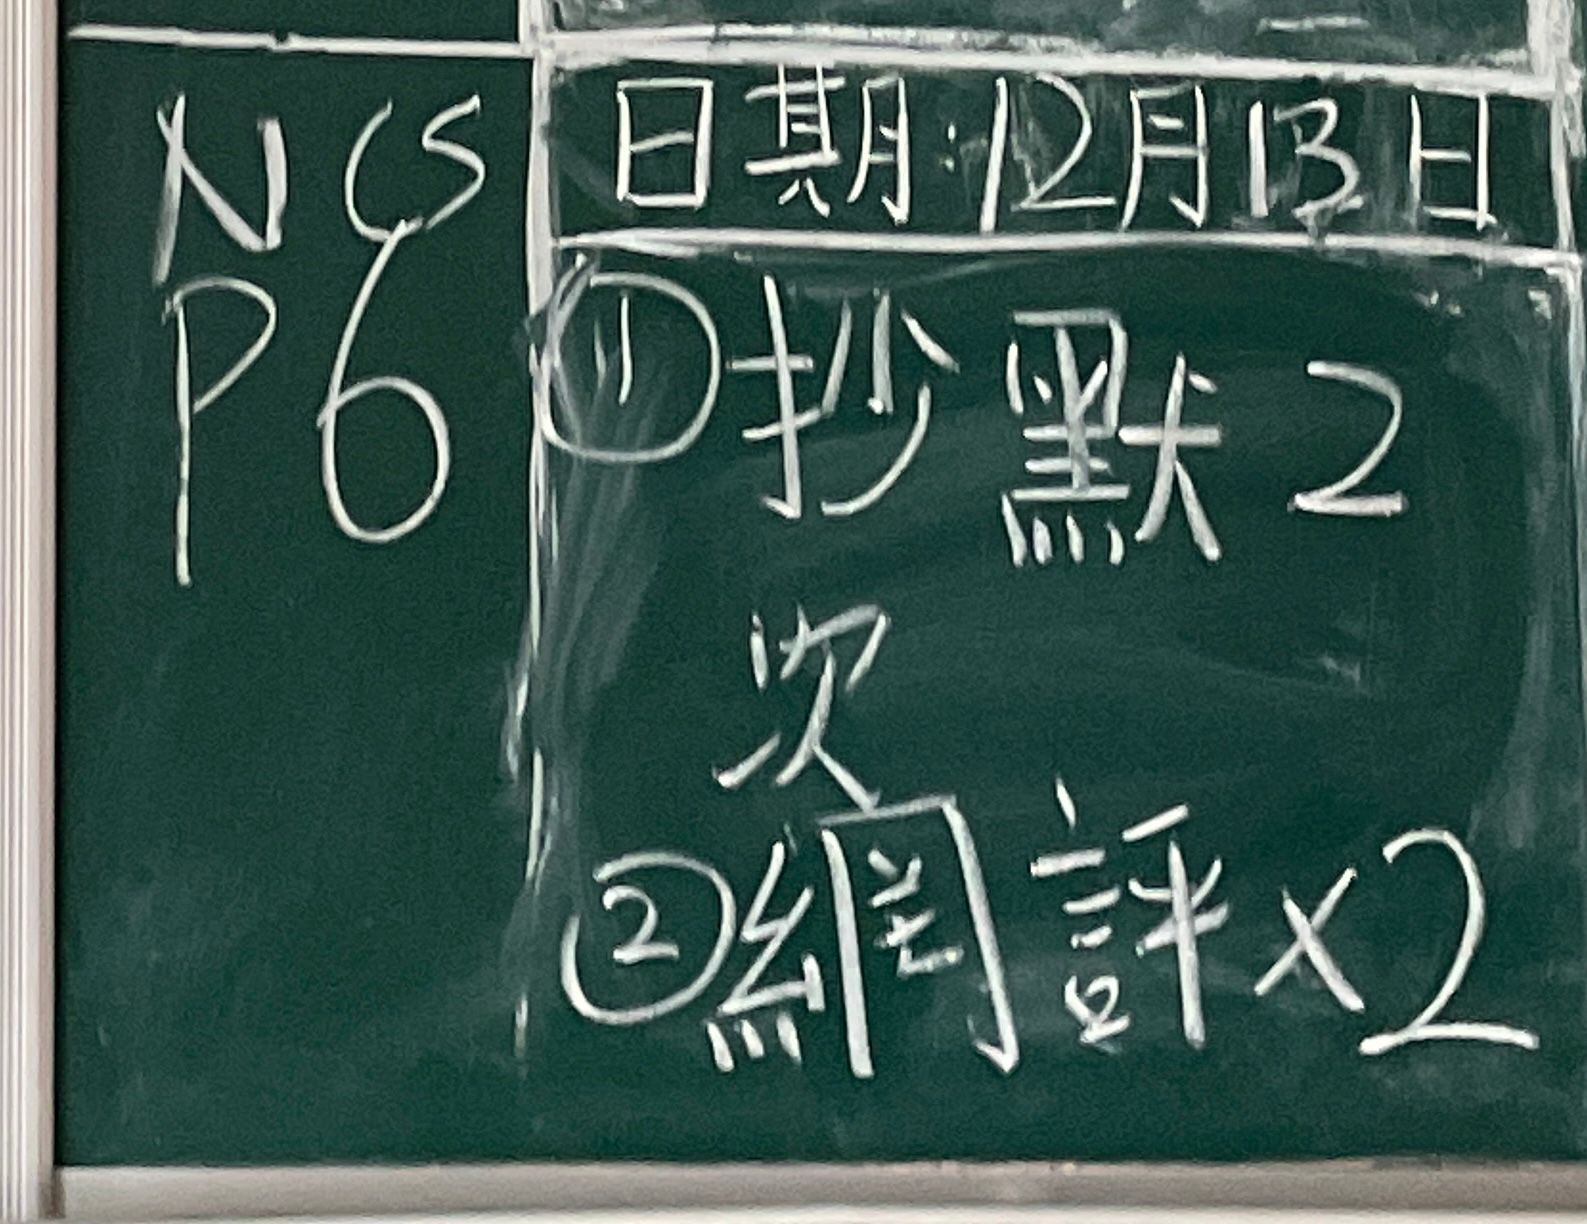 NCS
P6
日期:12月13日
①抄默2
次
②網評×2